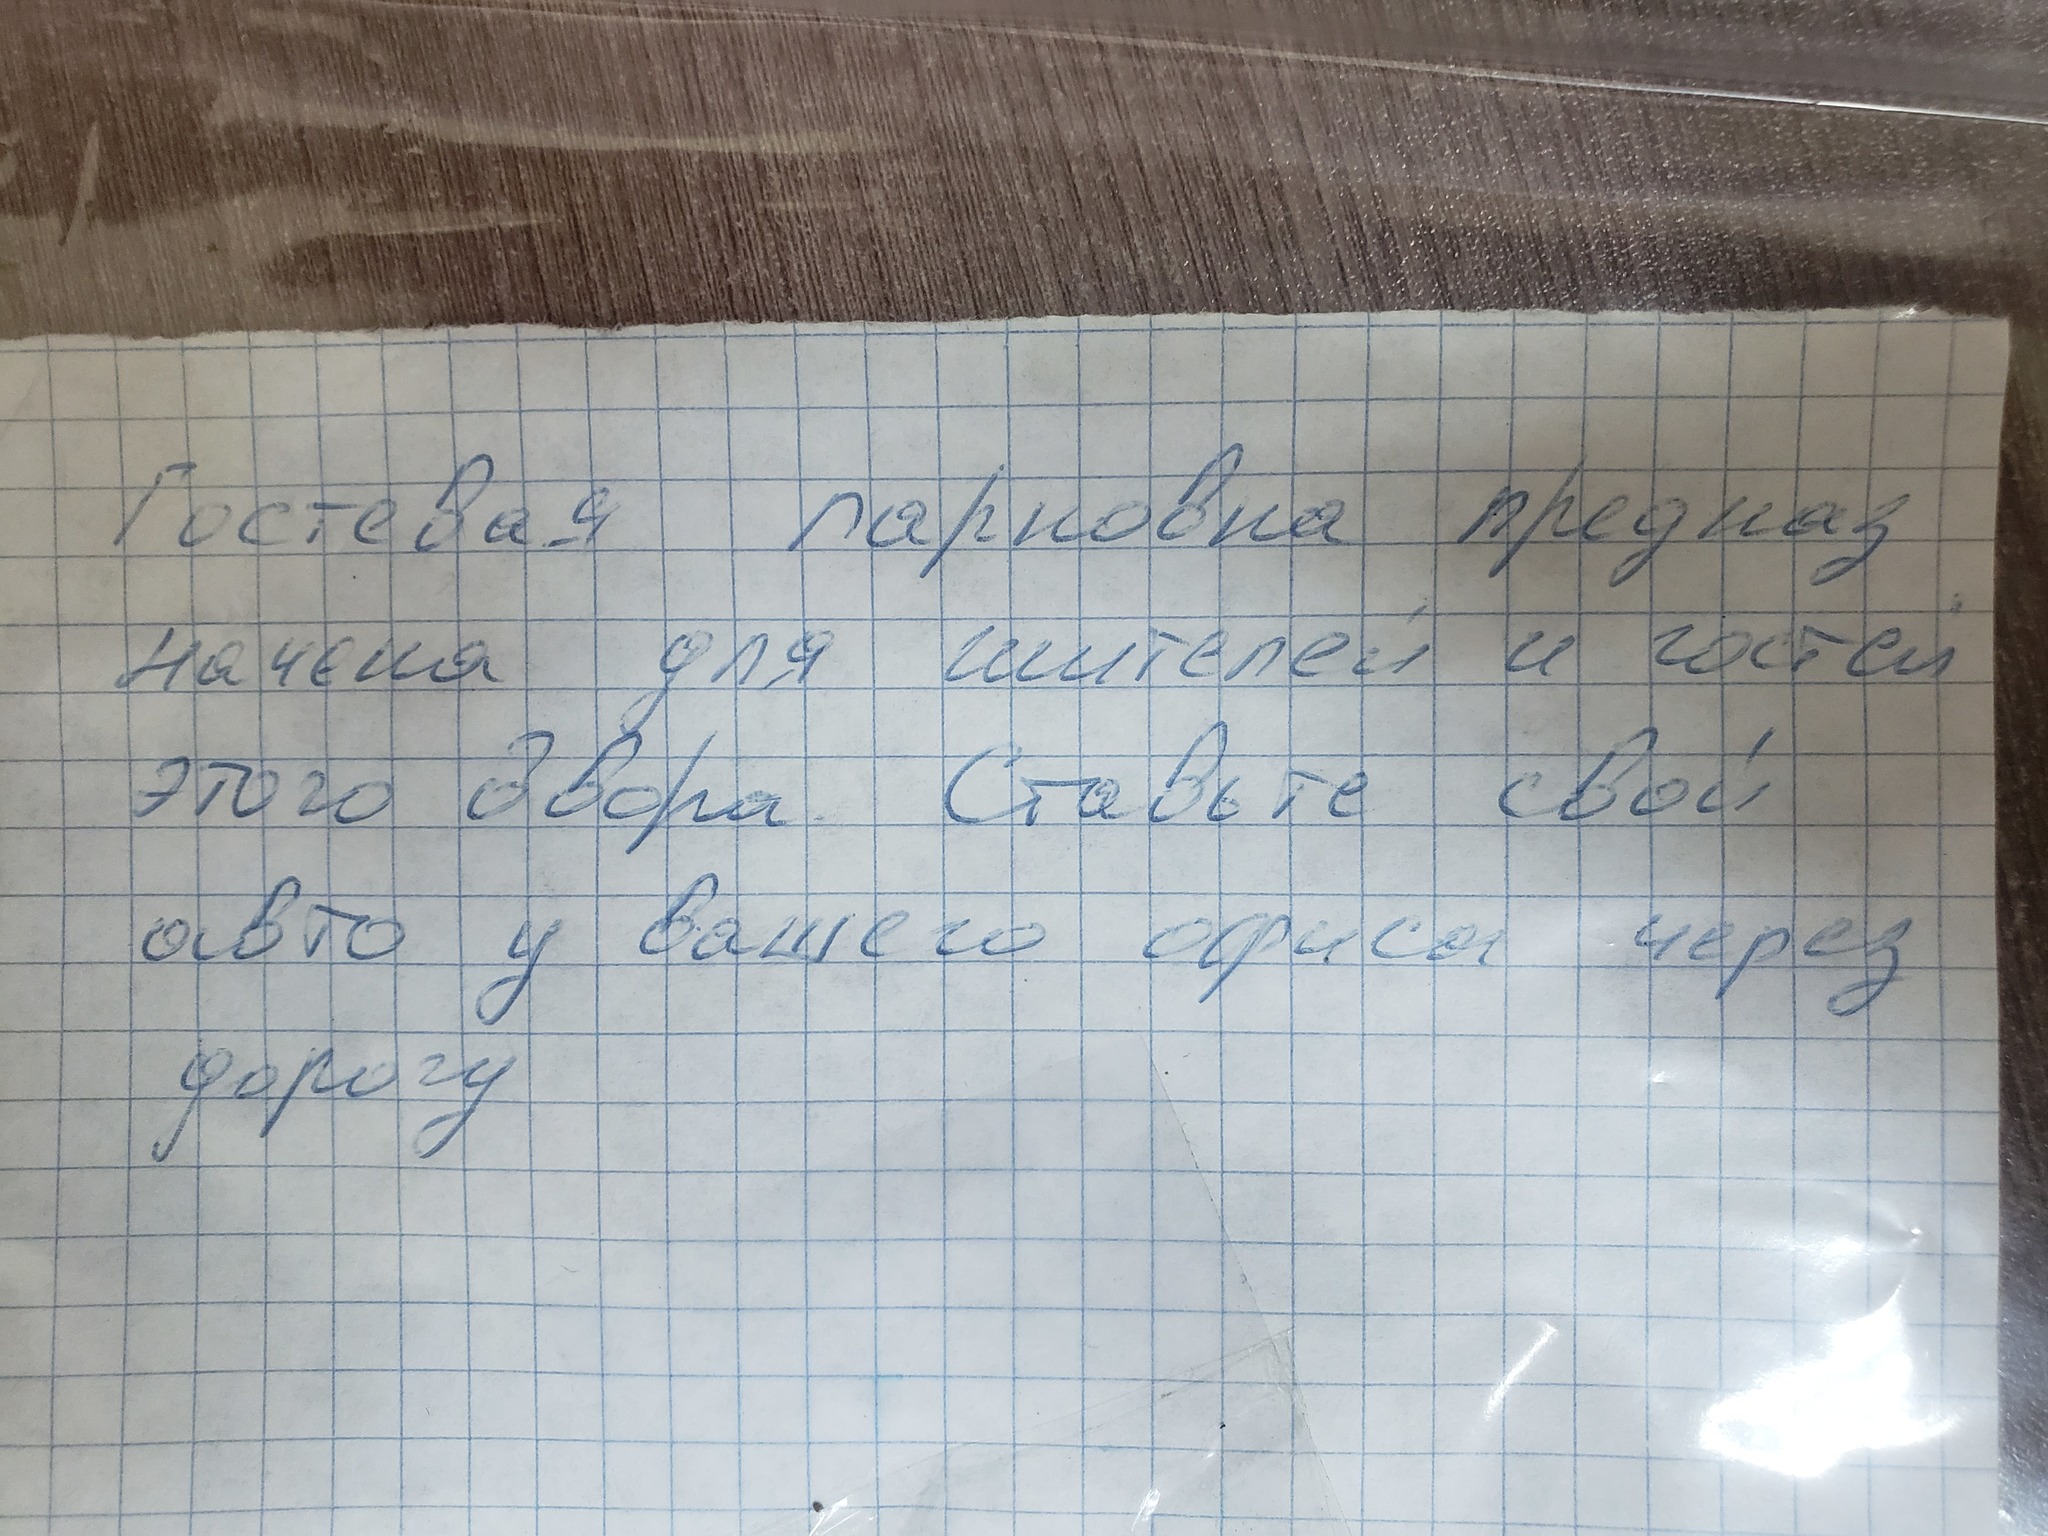 Гостевая парковка предназ
начена для жителей и гостей
этого двора. Ставьте свой
авто у вашего офиса через
дорогу